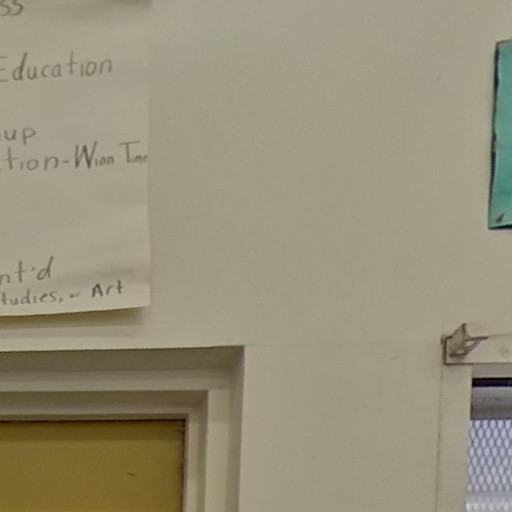 ss
Education
up
tion-Winn Time
nt'd
tudies, or Art